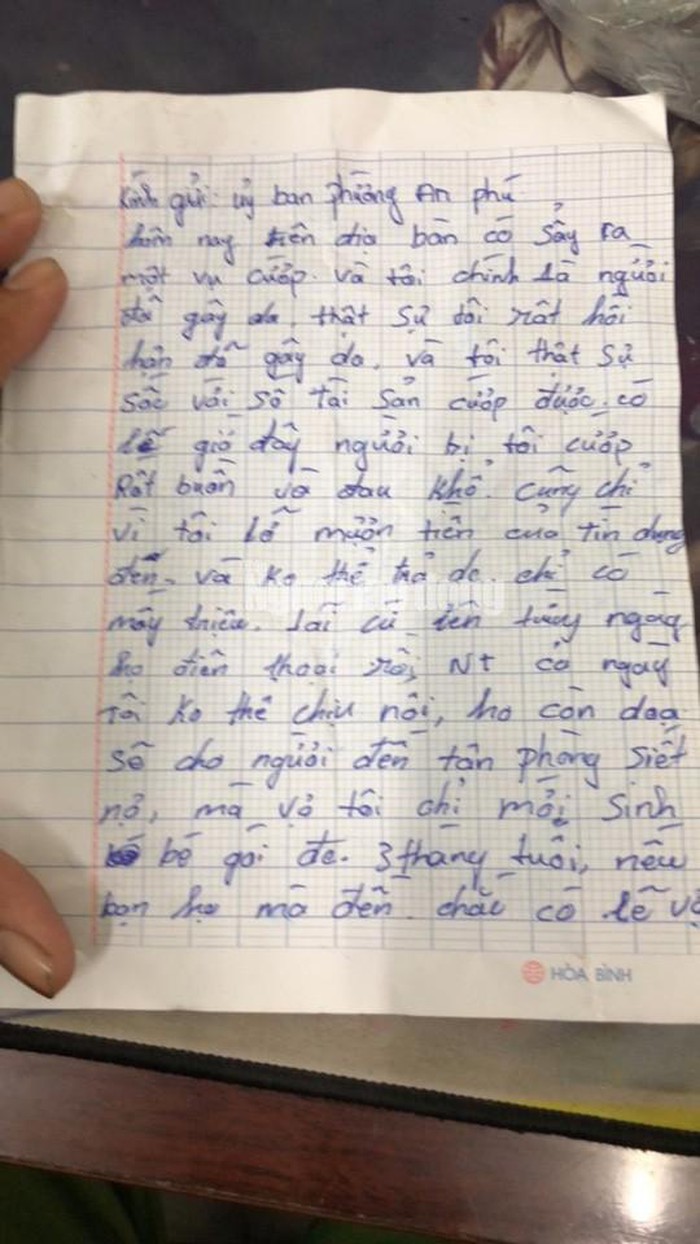 Kính gửi: ủy ban phường An phú
hôm nay trên địa bàn có sảy ra
một vụ cướp. và tôi chính là người
đã gây da. thật sự tôi rất hối
hận đã gây da. và tôi thật sự
sốc với số tài sản cướp được. có
lẽ giờ đây người bị tôi cướp
Rất buồn và đau khổ. cũng chỉ
vì tôi lỡ mượn tiền của tín dụng
đen. và ko thể trả dc. chỉ có
mấy triệu. lãi cứ lên từng ngày
họ điện thoại rồi NT cả ngày
Tôi ko thể chịu nổi, họ còn doạ
sẽ cho người đến tận phòng siết
nợ, mà vợ tôi chỉ mới sinh
bé gái dc. 3 tháng tuổi, nếu
bọn họ mà đến. chắc có lẽ vợ
HÒA BÌNH